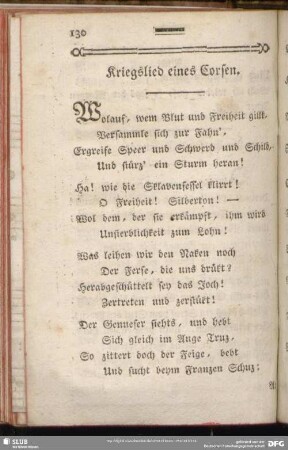 130
Kriegslied eines Corsen.
Wolauf, wem Blut und Freiheit gilt,
Versammle sich zur Fahn',
Ergreife Speer und Schwerd und Schild,
Und stürz' ein Sturm heran!
Ha! wie die Sklavenfessel klirrt!
O Freiheit! Silberton! —
Wol dem, der sie erkämpft, ihm wird
Unsterblichkeit zum Lohn!
Was leihen wir den Naken noch
Der Ferse, die uns drükt?
Herabgeschüttelt sey das Joch!
Zertreten und zerstükt!
Der Genueser siehts, und hebt
Sich gleich im Auge Truz,
So zittert doch der Feige, bebt
Und sucht beym Franzen Schuz:
SLUB
DFG